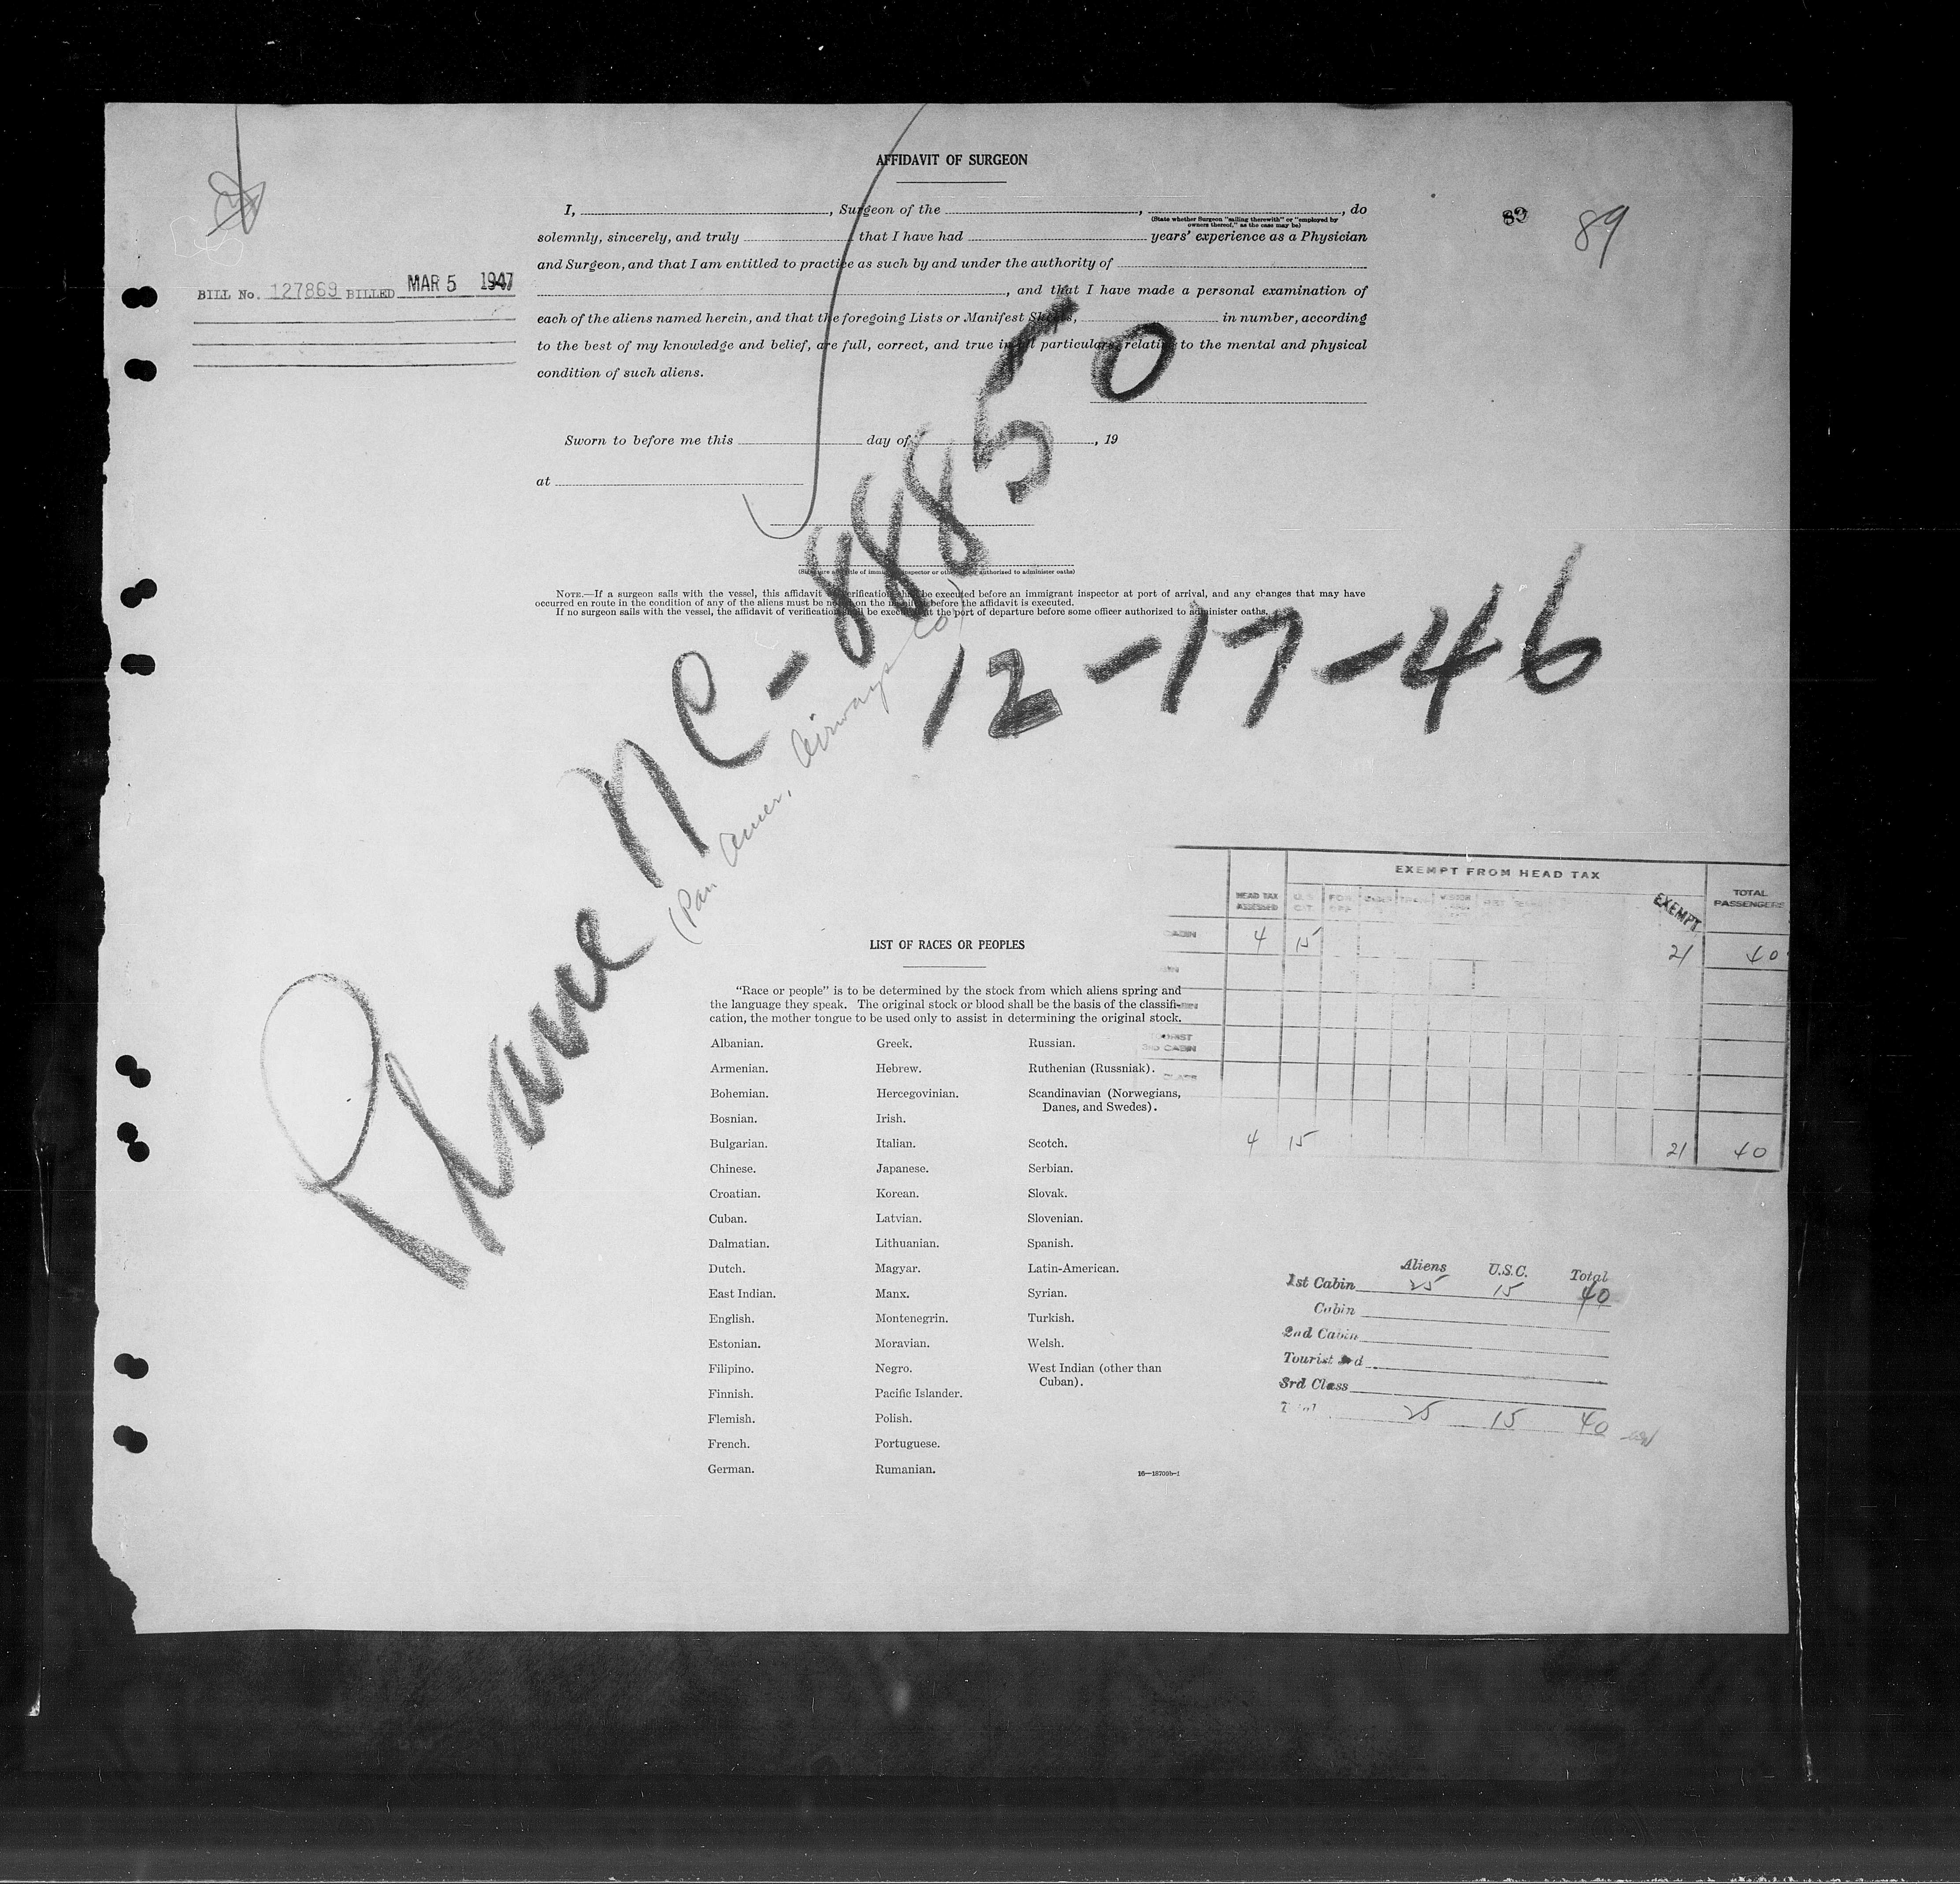 AFFIDAVIT OF SURGEON
I, , Surgeon of the , , do
(State whether Surgeon "sailing therewith" or "employed by
owners thereof," as the case may be)
solemnly, sincerely, and truly that I have had years' experience as a Physician
and Surgeon, and that I am entitled to practice as such by and under the authority of
, and that I have made a personal examination of
each of the aliens named herein, and that the foregoing Lists or Manifest Sheets, in number, according
to the best of my knowledge and belief, are full, correct, and true in all particulars relating to the mental and physical
condition of such aliens.
Sworn to before me this day of , 19
at
(Signature and title of immigrant inspector or other officer authorized to administer oaths)
NOTE.—If a surgeon sails with the vessel, this affidavit of verification shall be executed before an immigrant inspector at port of arrival, and any changes that may have
occurred en route in the condition of any of the aliens must be noted on the manifest before the affidavit is executed.
If no surgeon sails with the vessel, the affidavit of verification shall be executed at the port of departure before some officer authorized to administer oaths.
89
89
BILL No. 127869 BILLED MAR 5 1947
Plane NC-88850
(Pan Amer. Airways Co)
12-17-46
LIST OF RACES OR PEOPLES
"Race or people" is to be determined by the stock from which aliens spring and
the language they speak. The original stock or blood shall be the basis of the classifi-
cation, the mother tongue to be used only to assist in determining the original stock.
Albanian. Greek. Russian.
Armenian. Hebrew. Ruthenian (Russniak).
Bohemian. Hercegovinian. Scandinavian (Norwegians,
Danes, and Swedes).
Bosnian. Irish.
Bulgarian. Italian. Scotch.
Chinese. Japanese. Serbian.
Croatian. Korean. Slovak.
Cuban. Latvian. Slovenian.
Dalmatian. Lithuanian. Spanish.
Dutch. Magyar. Latin-American.
East Indian. Manx. Syrian.
English. Montenegrin. Turkish.
Estonian. Moravian. Welsh.
Filipino. Negro. West Indian (other than
Cuban).
Finnish. Pacific Islander.
Flemish. Polish.
French. Portuguese.
German. Rumanian.
16—18709b-1
EXEMPT FROM HEAD TAX
HEAD TAX
ASSESSED
U.S.
CIT.
EXEMPT
TOTAL
PASSENGERS
CABIN 4 15 21 40
3RD CABIN
CLASS
4 15 21 40
Aliens U.S.C. Total
1st Cabin 25 15 40
Cabin
2nd Cabin
Tourist 3rd
3rd Class
Total 25 15 40